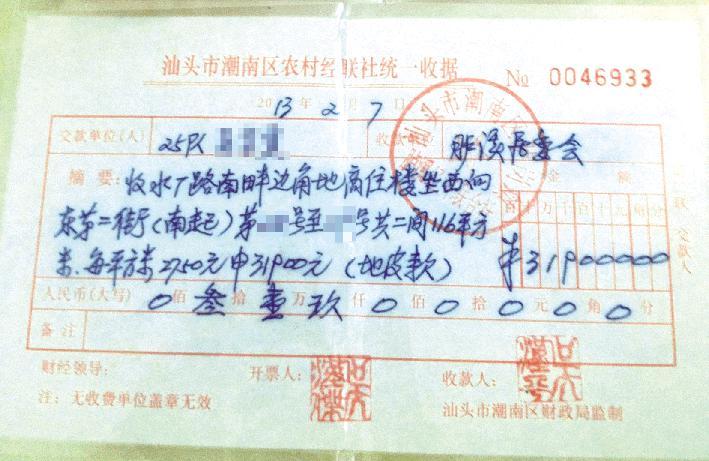 汕头市潮南区农村经联社统一收据
№ 0046933
20 13 年 2 月 7 日
交款单位(人) 25队 收款单
居委会
摘要: 收水厂路南畔边角地商住楼坐西向
东第二街(南起)第 号至 号共二间116平方
米.每平方米2750元申319000元(地皮款)
金额
百十万千百十元角分
¥31900000
人民币(大写) 0佰叁拾壹万玖仟0佰0拾0元0角0分
备注
交款人
财经领导: 开票人: 收款人:
注: 无收费单位盖章无效
汕头市潮南区财政局监制